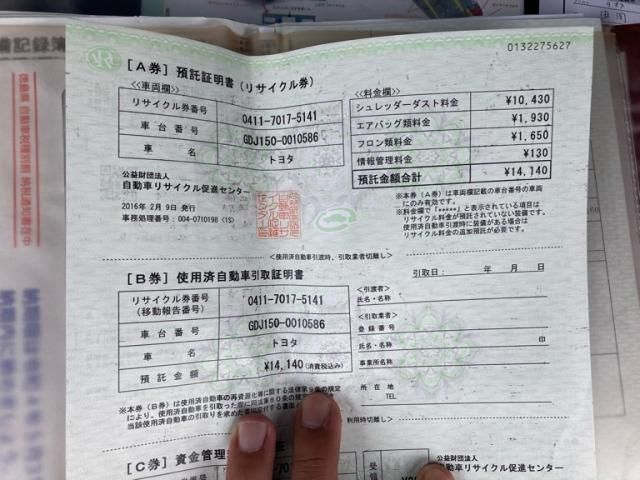 0132275627
[A券] 預託証明書(リサイクル券)
<<車両欄>>
リサイクル券番号 0411-7017-5141
車台番号 GDJ150-0010586
車名 トヨタ
<<料金欄>>
シュレッダーダスト料金 ¥10,430
エアバッグ類料金 ¥1,930
フロン類料金 ¥1,650
情報管理料金 ¥130
預託金額合計 ¥14,140
公益財団法人
自動車リサイクル促進センター
2016年 2月 9日 発行
事務処理番号: 004-0710198 (1S)
※本券(A券)は車両欄記載の車台番号の車両
にのみ有効です。
※料金欄で「*****」と表示されている項目は
リサイクル料金が預託されていない装備です。
使用済自動車引渡時に装備がある場合は
リサイクル料金の追加預託が必要です。
<使用済自動車引渡時、引取業者切離し>
[B券] 使用済自動車引取証明書
引取日: 年 月 日
リサイクル券番号
(移動報告番号) 0411-7017-5141
車台番号 GDJ150-0010586
車名 トヨタ
預託金額 ¥14,140(消費税込み)
<引渡者>
氏名・名称
<引取業者>
登録番号
氏名・名称 印
事業所名称
所在地
TEL
※本券(B券)は使用済自動車の再資源化等に関する法律第
により、使用済自動車を引取った際に
当該使用済自動車の引取りを求めた者に交付する書面
利用時切離し>
[C券] 資金管理
公益財団法人
自動車リサイクル促進センター